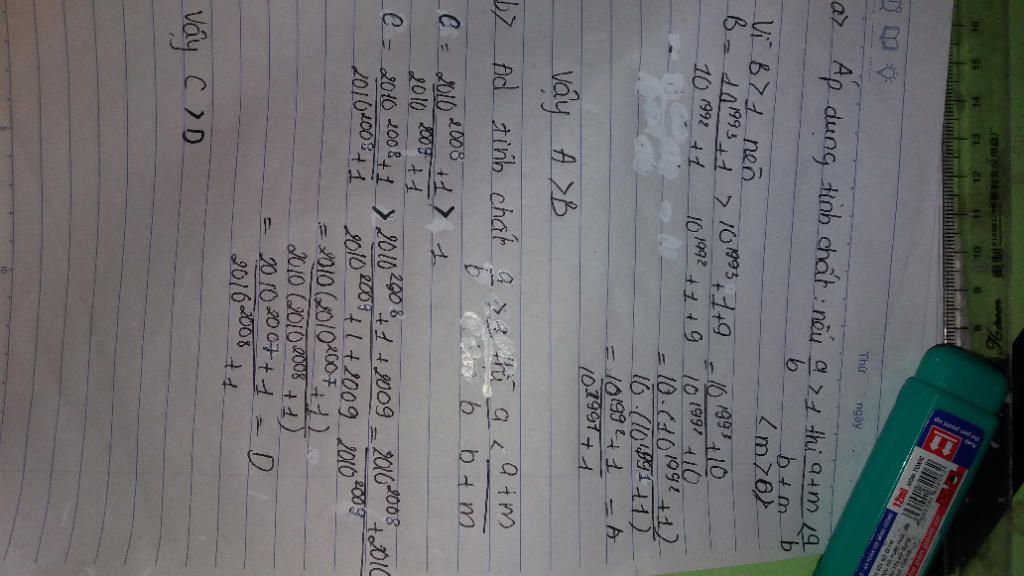 Thứ ngày
a> Áp dụng tính chất: nếu a/b > 1 thì a+m/b+m < a/b
<m>0>
Vì B > 1 nên
B = 10^1993 + 1 / 10^1992 + 1 > 10^1993 + 1 + 9 / 10^1992 + 1 + 9 = 10^1993 + 10 / 10^1992 + 10
= 10 . (10^1992 + 1) / 10 . (10^1991 + 1)
= 10^1992 + 1 / 10^1991 + 1 = A
Vậy A > B
b> Ad tính chất a/b > 1 thì a/b < a+m/b+m
C = 2010^2008 + 1 / 2010^2007 + 1 > 1
C = 2010^2008 + 1 / 2010^2009 + 1 > 2010^2008 + 1 + 2009 / 2010^2009 + 1 + 2009 = 2010^2008 + 2010 / 2010^2009
= 2010 (2010^2007 + 1) / 2010 (2010^2008 + 1)
= 2010^2007 + 1 / 2010^2008 + 1 = D
Vậy C > D
12ml